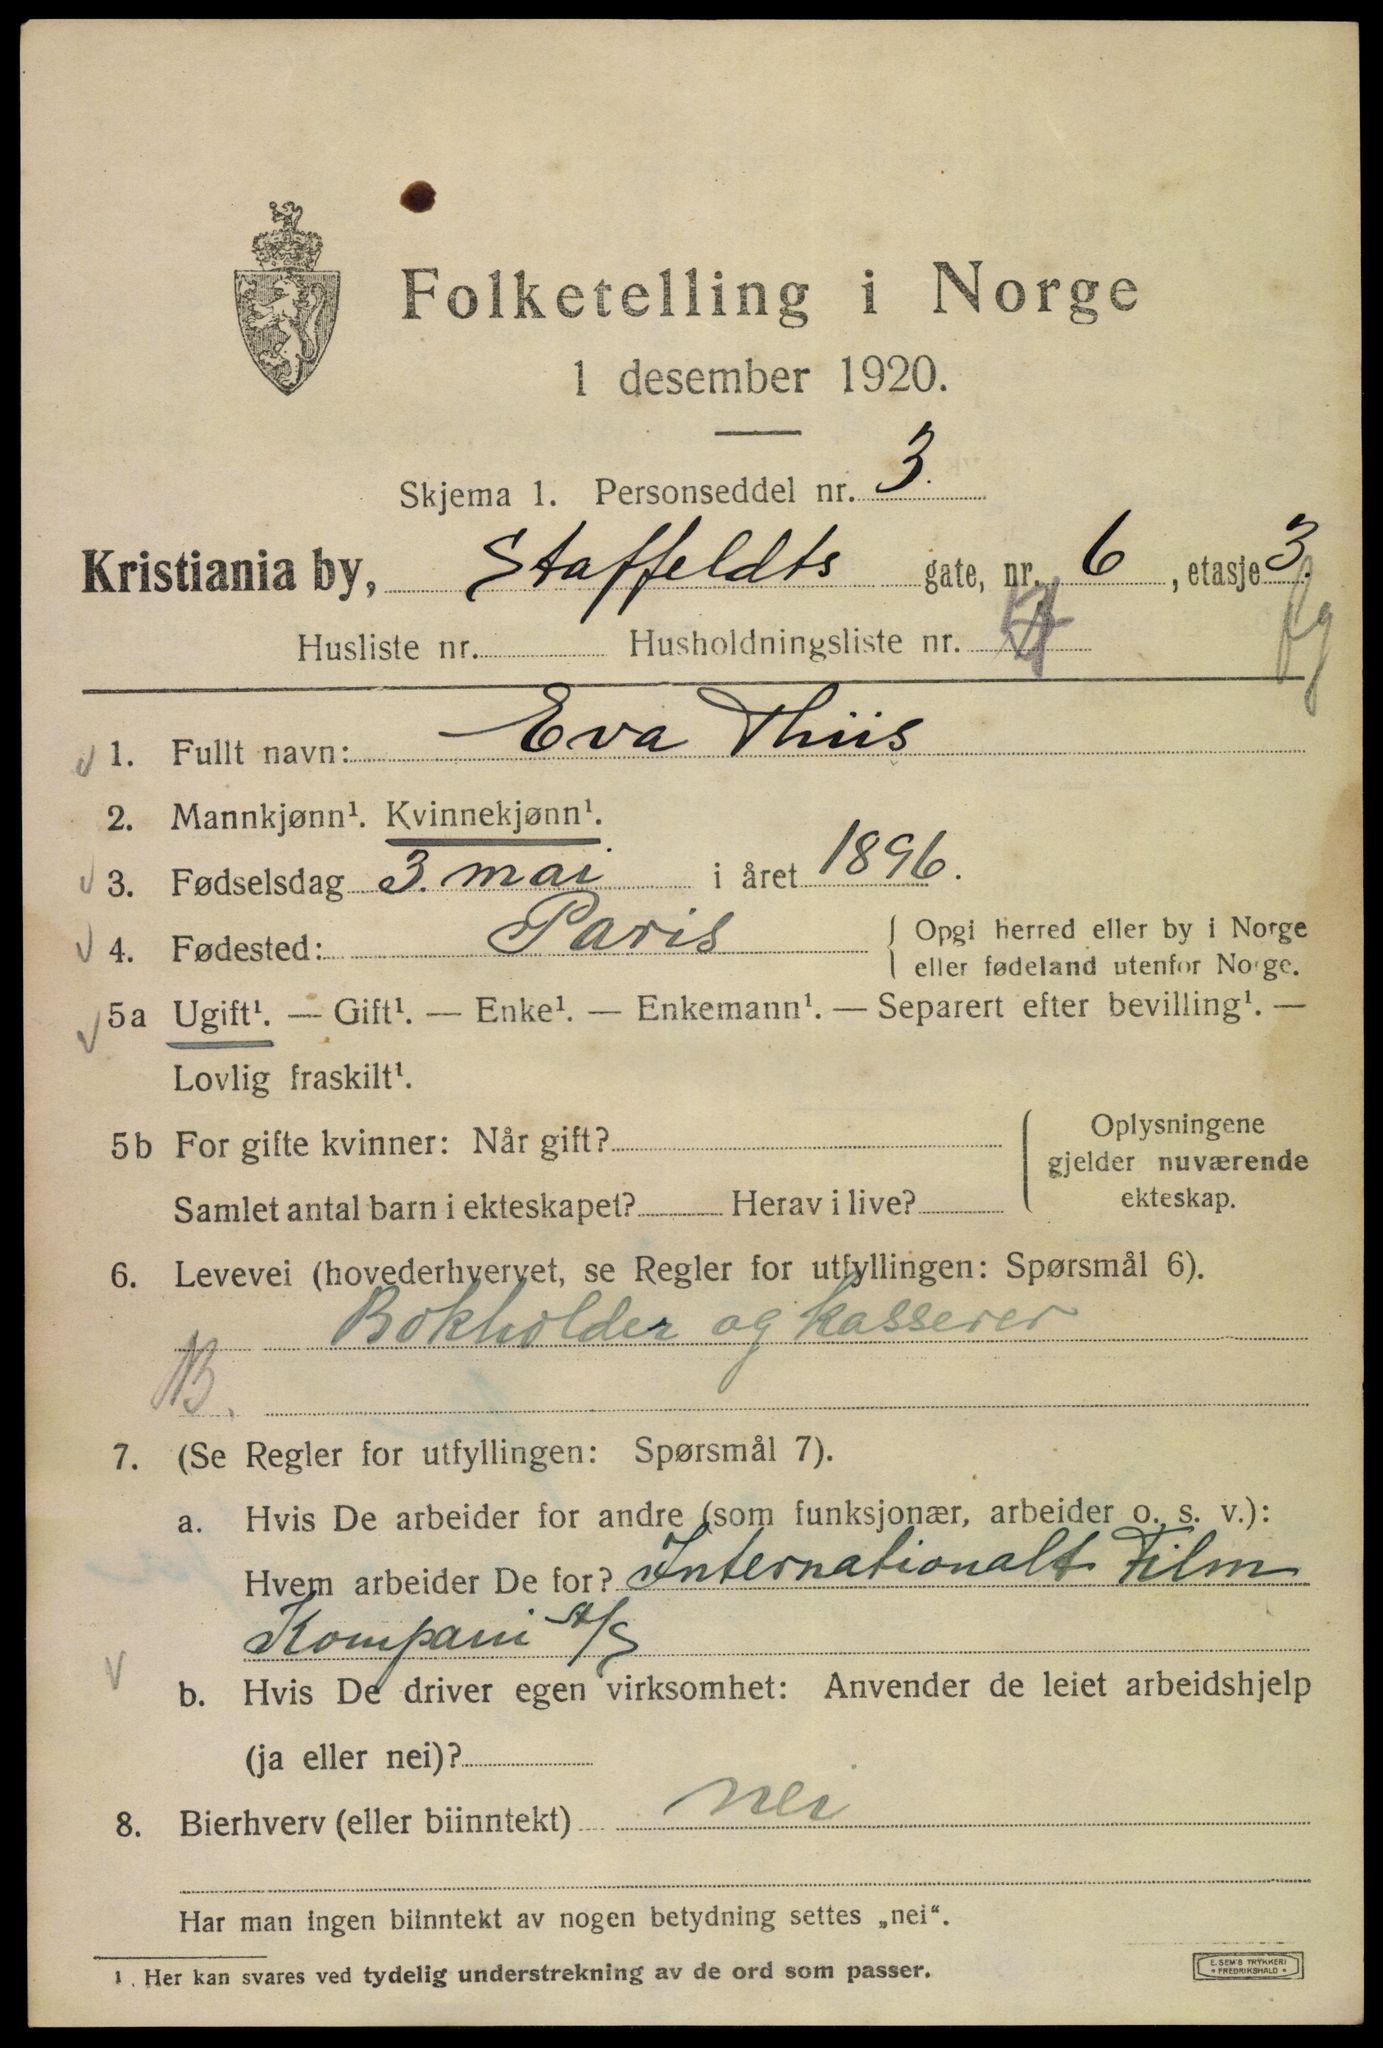 Folketelling i Norge
1 desember 1920.
Skjema 1. Personseddel nr. 3.
Kristiania by, Staffeldts gate, nr. 6, etasje 3.
Husliste nr. Husholdningsliste nr.
1. Fullt navn: Eva Thiis
2. Mannkjønn¹. Kvinnekjønn¹.
3. Fødselsdag 3. mai i året 1896.
4. Fødested: Paris { Opgi herred eller by i Norge
eller fødeland utenfor Norge.
5a Ugift¹. — Gift¹. — Enke¹. — Enkemann¹. — Separert efter bevilling¹. —
Lovlig fraskilt¹.
5b For gifte kvinner: Når gift?
Samlet antal barn i ekteskapet? Herav i live?
{ Oplysningene
gjelder nuværende
ekteskap.
6. Levevei (hovederhvervet, se Regler for utfyllingen: Spørsmål 6).
Bokholder og kasserer
7. (Se Regler for utfyllingen: Spørsmål 7).
a. Hvis De arbeider for andre (som funksjonær, arbeider o. s. v.):
Hvem arbeider De for? Internationalt Film
Kompani A/S
b. Hvis De driver egen virksomhet: Anvender de leiet arbeidshjelp
(ja eller nei)?
8. Bierhverv (eller biinntekt) nei
Har man ingen biinntekt av nogen betydning settes „nei“.
¹ . Her kan svares ved tydelig understrekning av de ord som passer.
E. SEM'S TRYKKERI
• FREDRIKSHALD •